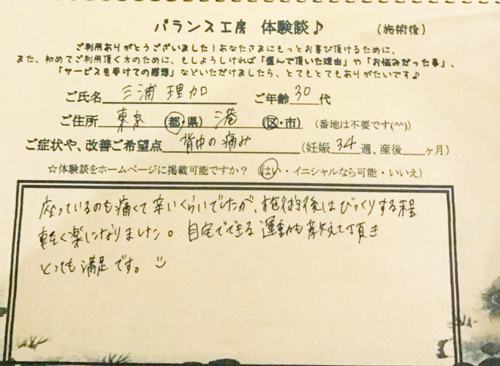 バランス工房 体験談♪ (施術後)
ご利用ありがとうございました!あなたさまにもっとお喜び頂けるために、
また、初めてご利用頂く方のために、もしよろしければ「選んで頂いた理由」や「お悩みだった事」、
「サービスを受けての感想」などいただけましたら、とてもとてもありがたいです♪
ご氏名 三浦 理加 ご年齢 30 代
ご住所 東京 都・県) 港 区・市) (番地は不要です(^^))
ご症状や、改善ご希望点 背中の痛み (妊娠 34 週、産後 ヶ月)
☆体験談をホームページに掲載可能ですか? (はい・イニシャルなら可能・いいえ)
座っているのも痛くて辛いくらいでしたが、施術後はびっくりする程
軽く楽になりました。自宅でできる運動も教えて頂き
とっても満足です。